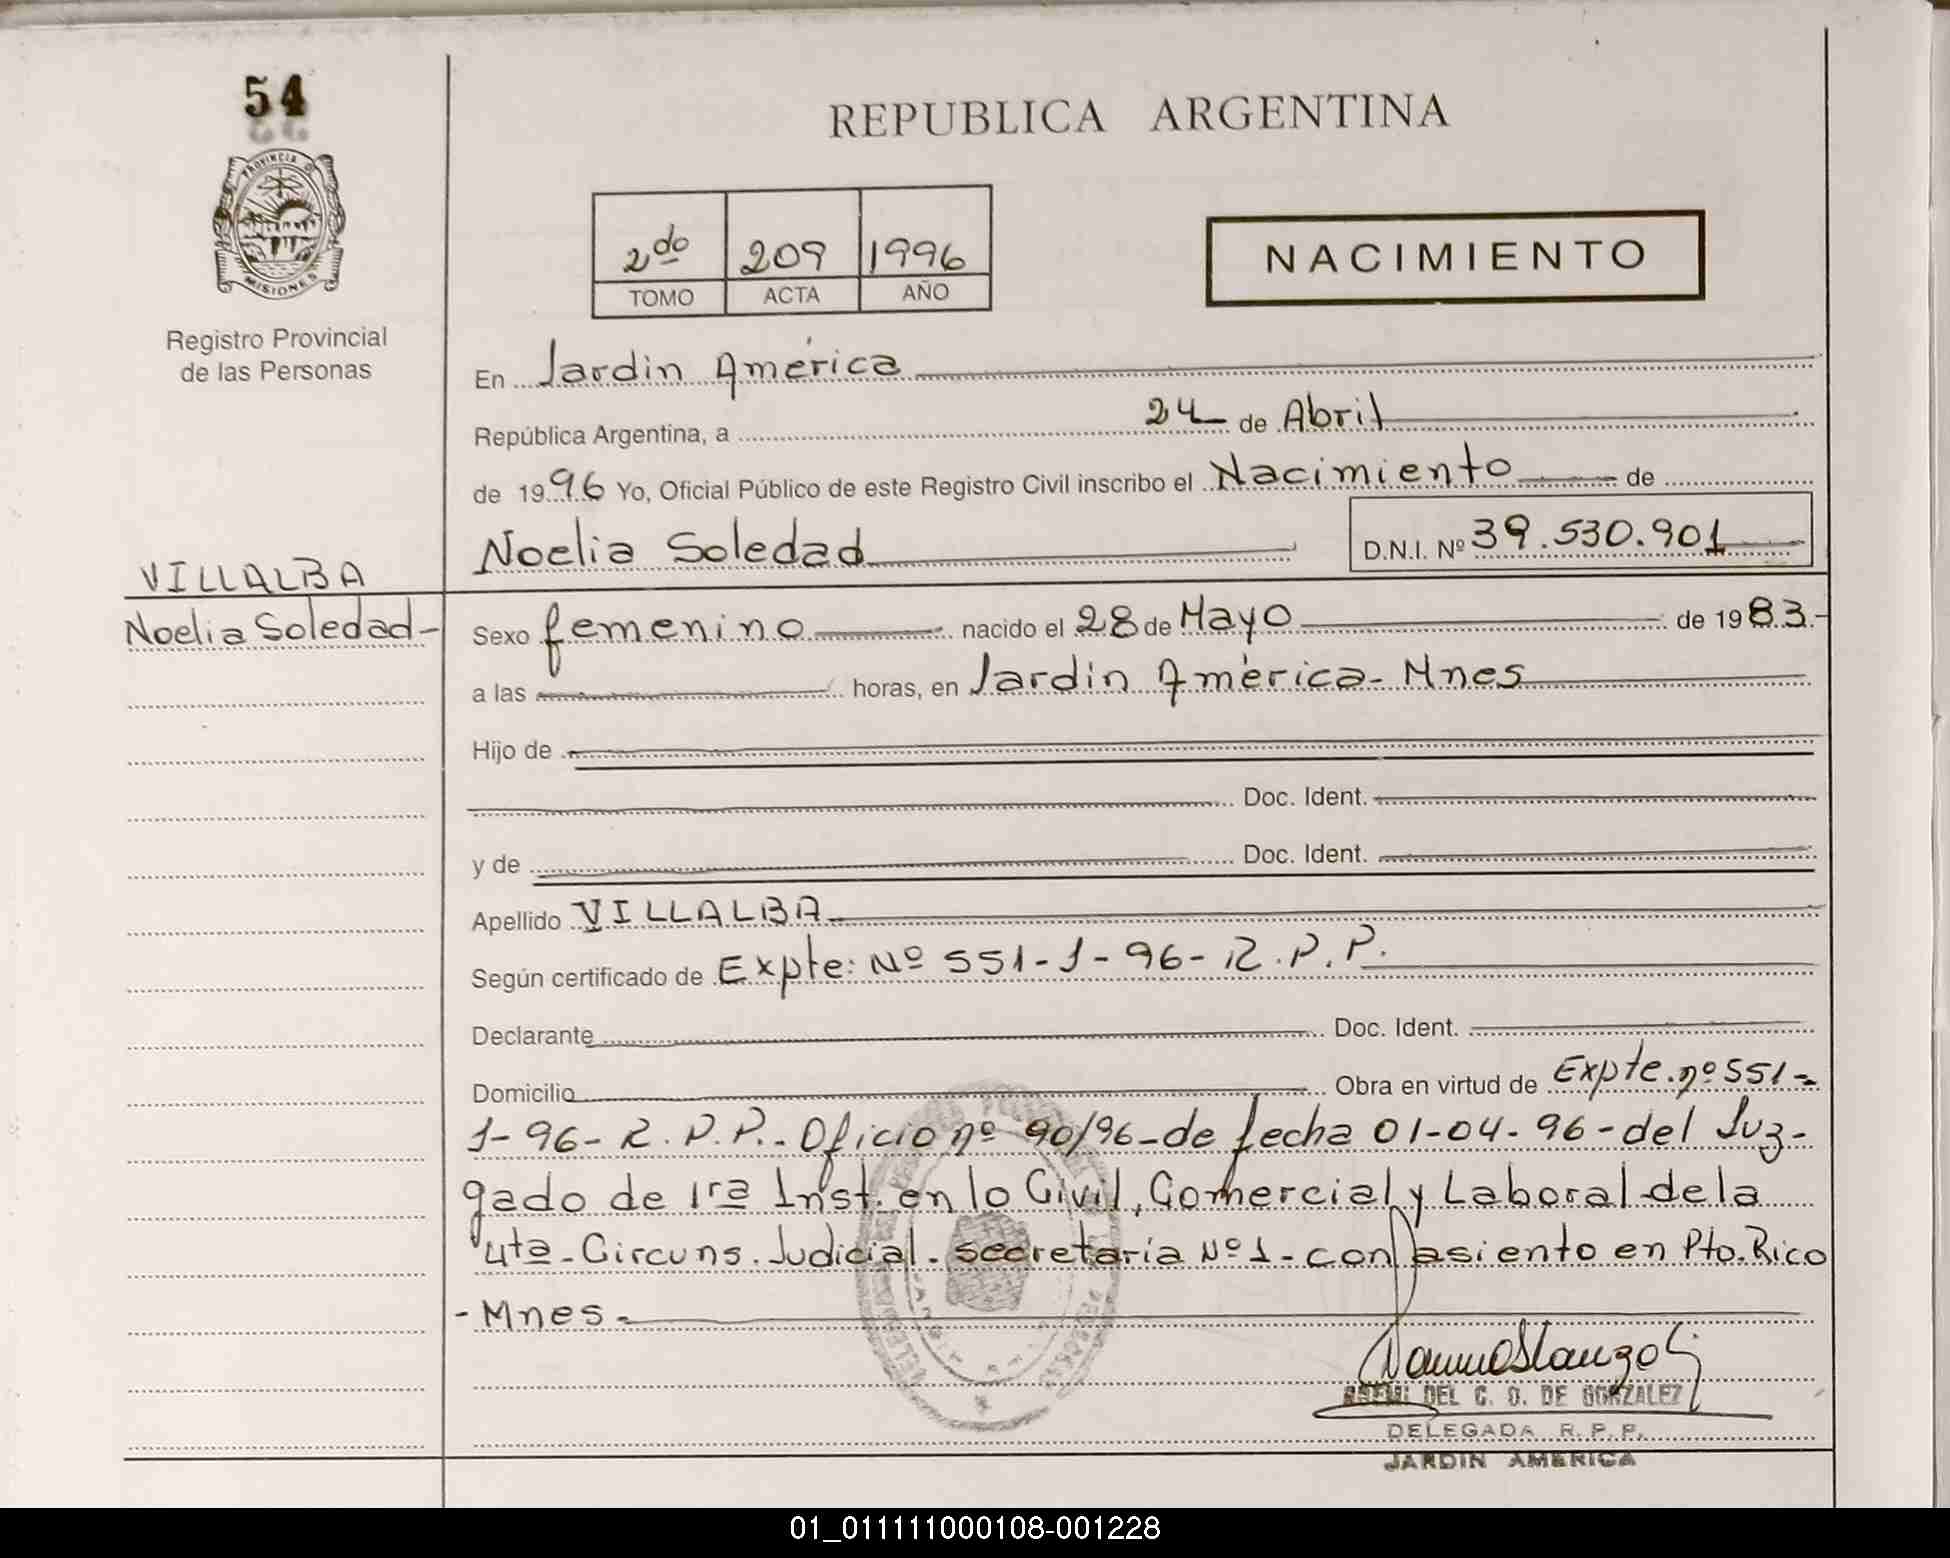 54
PROVINCIA DE
MISIONES
Registro Provincial
de las Personas
VILLALBA
Noelia Soledad-
REPUBLICA ARGENTINA
2do 209 1996
TOMO ACTA AÑO
NACIMIENTO
En Jardin América
República Argentina, a 24 de Abril
de 1996 Yo, Oficial Público de este Registro Civil inscribo el Nacimiento de
Noelia Soledad D.N.I. Nº 39.530.901
Sexo femenino nacido el 28 de Mayo de 1983.-
a las horas, en Jardin América- Mnes
Hijo de
Doc. Ident.
y de Doc. Ident.
Apellido VILLALBA
Según certificado de Expte: Nº 551-1-96-R.P.P.
Declarante Doc. Ident.
Domicilio Obra en virtud de Expte. nº 551-
1-96-R.P.P.- Oficio nº 90/96-de fecha 01-04-96-del Juz-
gado de 1ra Inst. en lo Civil, Comercial y Laboral de la
4ta-Circuns. Judicial- secretaría Nº1-con asiento en Pto. Rico
-Mnes-
DEL C. D. DE GONZALEZ
DELEGADA R. P. P.
JARDIN AMERICA
01_011111000108-001228